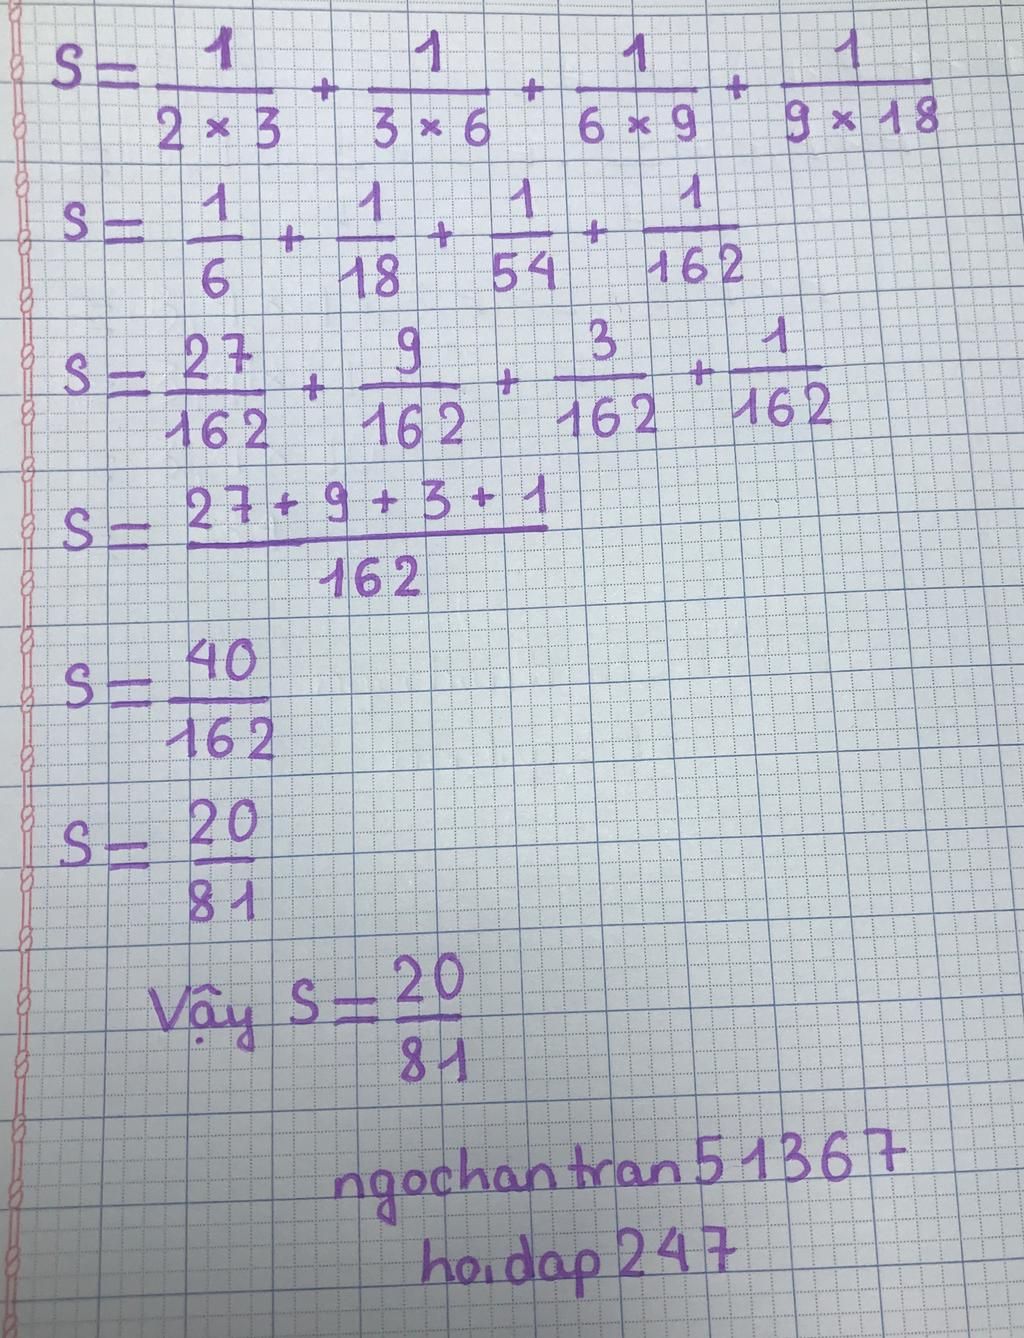 S = 1/(2 × 3) + 1/(3 × 6) + 1/(6 × 9) + 1/(9 × 18)
S = 1/6 + 1/18 + 1/54 + 1/162
S = 27/162 + 9/162 + 3/162 + 1/162
S = (27 + 9 + 3 + 1)/162
S = 40/162
S = 20/81
Vậy S = 20/81
ngochantran51367
hoidap247